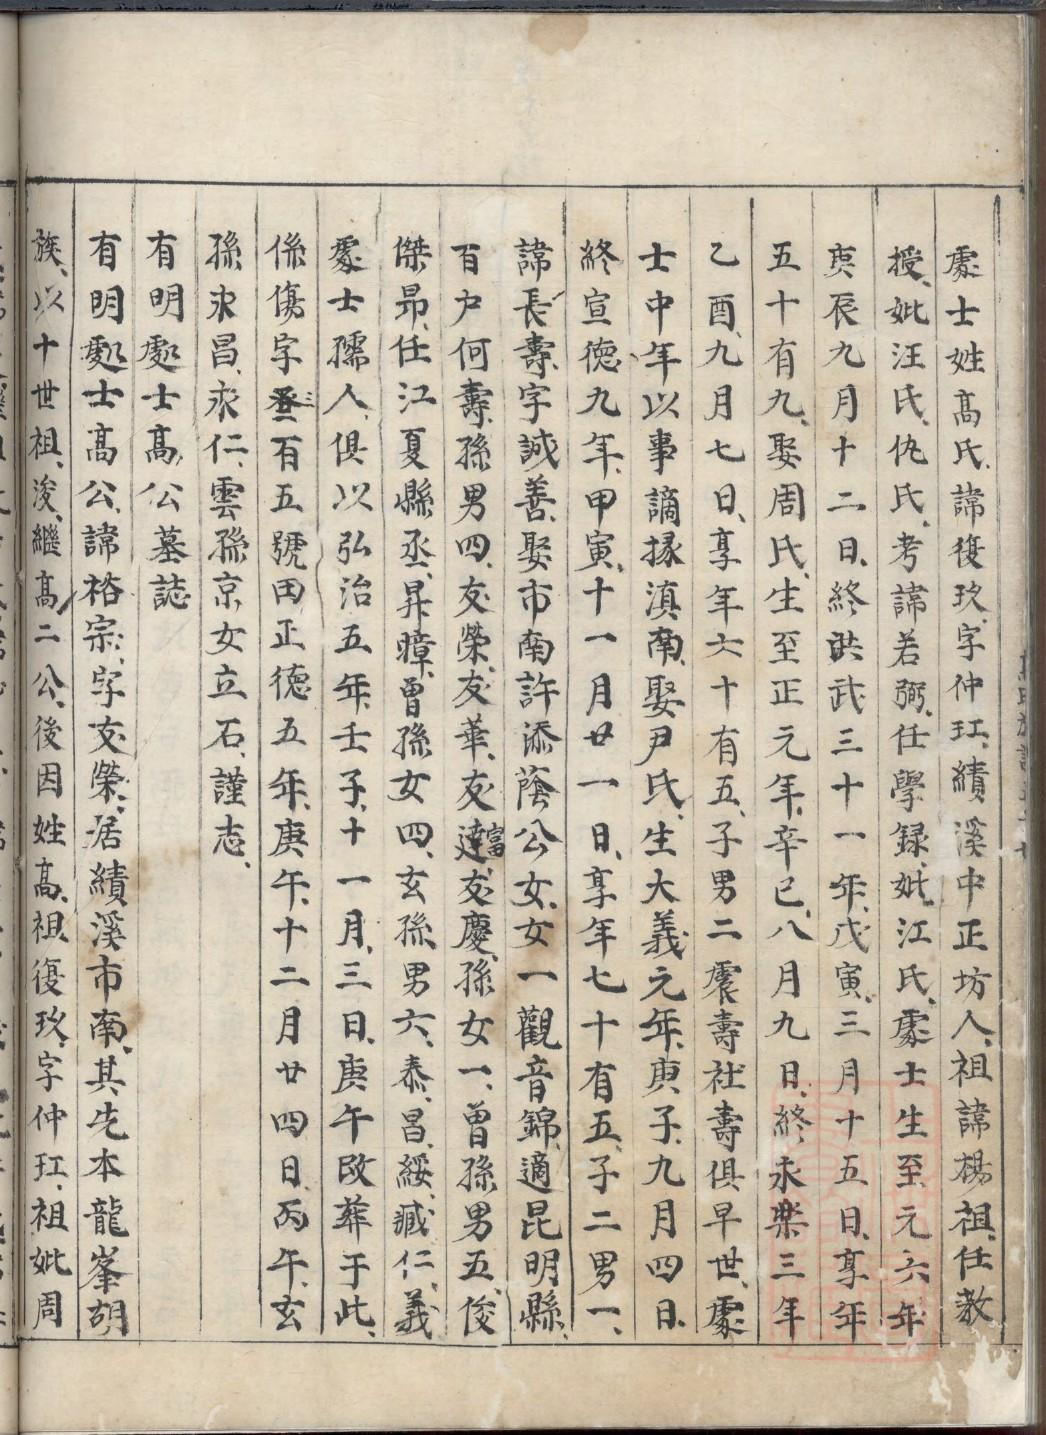 處士姓高氏、諱復玖、字仲玒、績溪中正坊人、祖諱楊祖、任教
授、妣汪氏、仇氏、考諱若弼、任學録、妣江氏、處士生至元六年
庚辰九月十二日、終洪武三十一年、戊寅、三月十五日、享年
五十有九、娶周氏、生至正元年、辛巳、八月九日、終永樂三年
乙酉、九月七日、享年六十有五、子男二震壽社壽俱早世、處
士中年以事謫掾滇南、娶尹氏、生大義元年、庚子、九月四日、
終宣德九年、甲寅、十一月廿一日、享年七十有五、子二男一、
諱長壽、字誠善、娶市南許添蔭公女、女一觀音錦、適昆明縣、
百户何壽、孫男四、友榮、友華、友達富、友慶、孫女一、曽孫男五、俊
傑昂、任江夏縣丞、昇暲、曽孫女四、玄孫男六、泰、昌、綏、臧、仁、義
處士孺人、俱以弘治五年、壬子、十一月、三日、庚午改葬于此、
係傷字叁百五號田、正德五年、庚午、十二月廿四日、丙午、玄
孫永昌、永仁、雲孫京、女立石、謹志、
有明處士高公墓誌
有明處士高公、諱裕宗、字友榮、居績溪市南、其先本龍峯胡
族、以十世祖、浚、繼高二公、後因姓高、祖復玖、字仲玒、祖妣周